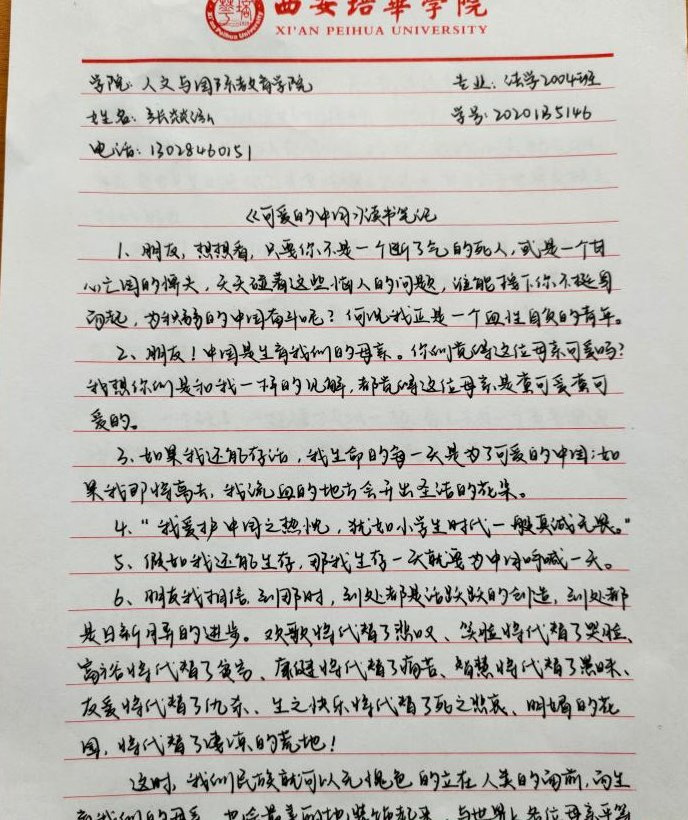 西安培华学院
XI'AN PEIHUA UNIVERSITY
学院:人文与国际教育学院 专业:法学2004班
姓名:张 学号:2020135146
电话:13028460151
《可爱的中国》读书笔记
1、朋友,想想看,只要你不是一个断了气的死人,或是一个甘
心亡国的懦夫,天天碰着这些恼人的问题,谁能按下你不挺身
而起,为积弱的中国奋斗呢?何况我正是一个血性自负的青年。
2、朋友!中国是生育我们的母亲。你们觉得这位母亲可爱吗?
我想你们是和我一样的见解,都觉得这位母亲是蛮可爱蛮可
爱的。
3、如果我还能存活,我生命的每一天是为了可爱的中国;如
果我即将离去,我流血的地方会开出圣洁的花朵。
4、“我爱护中国之热忱,犹如小学生时代一般真诚无畏。”
5、假如我还能生存,那我生存一天就要为中国呼喊一天。
6、朋友我相信,到那时,到处都是活跃跃的创造,到处都
是日新月异的进步。欢歌将代替了悲叹、笑脸将代替了哭脸、
富裕将代替了贫穷、康健将代替了痛苦、智慧将代替了愚昧、
友爱将代替了仇杀、生之快乐将代替了死之悲哀、明媚的花
园,将代替了凄凉的荒地!
这时,我们民族就可以无愧色的立在人类的面前,而生
育我们的母亲,也会最美丽地装饰起来,与世界上各位母亲平等